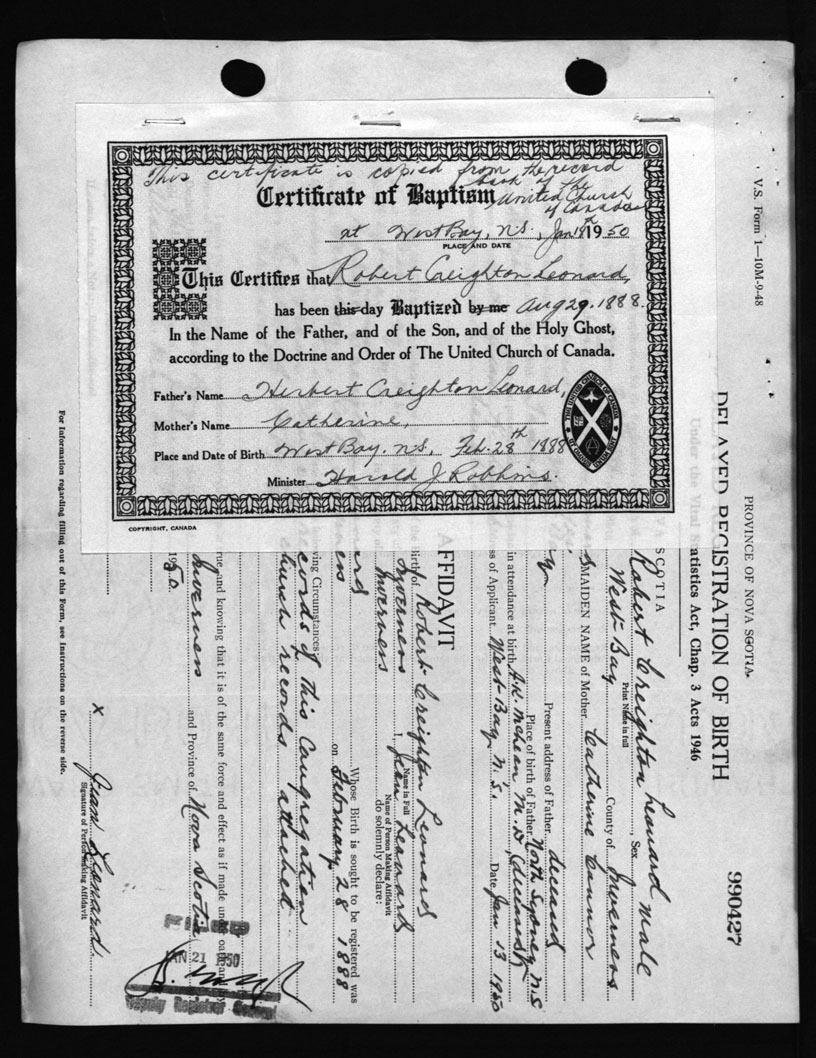 This certificate is copied from the record
book of the
United Church
of Canada
Certificate of Baptism
at West Bay, N.S., Jan 18th 1950
PLACE AND DATE
This Certifies that Robert Creighton Leonard,
has been this day Baptized by me Aug 29, 1888.
In the Name of the Father, and of the Son, and of the Holy Ghost,
according to the Doctrine and Order of The United Church of Canada.
Father's Name Herbert Creighton Leonard,
Mother's Name Catherine,
Place and Date of Birth West Bay. N.S, Feb. 28th 1888
Minister Harold J. Robbins.
COPYRIGHT, CANADA
V.S. Form 1—10M-9-48
PROVINCE OF NOVA SCOTIA.
DELAYED REGISTRATION OF BIRTH
990427
Under the Vital Statistics Act, Chap. 3 Acts 1946
SCOTIA
Robert Creighton Leonard Sex Male
Print Name in full
West Bay County of Inverness
MAIDEN NAME of Mother Catherine Connor
Present address of Father deceased
Place of birth of Father North Sydney N.S
in attendance at birth A.K. McLean M.D. (deceased)
ss of Applicant West Bay, N.S. Date Jan 13 1950
AFFIDAVIT
the Birth of Robert Creighton Leonard
Inverness I, Jean Leonard
Name in Full
Name of Person Making Affidavit
Inverness do solemnly declare:
Whose Birth is sought to be registered was
on February 28 1888
ving Circumstances:
cords of this Congregation
church records attached
rue and knowing that it is of the same force and effect as if made under oath
Inverness and Province of Nova Scotia
1950.
FILED
JAN 21 1950
Deputy Registrar General
X Jean Leonard.
Signature of Person Making Affidavit
For Information regarding filling out of this Form, see Instructions on the reverse side.